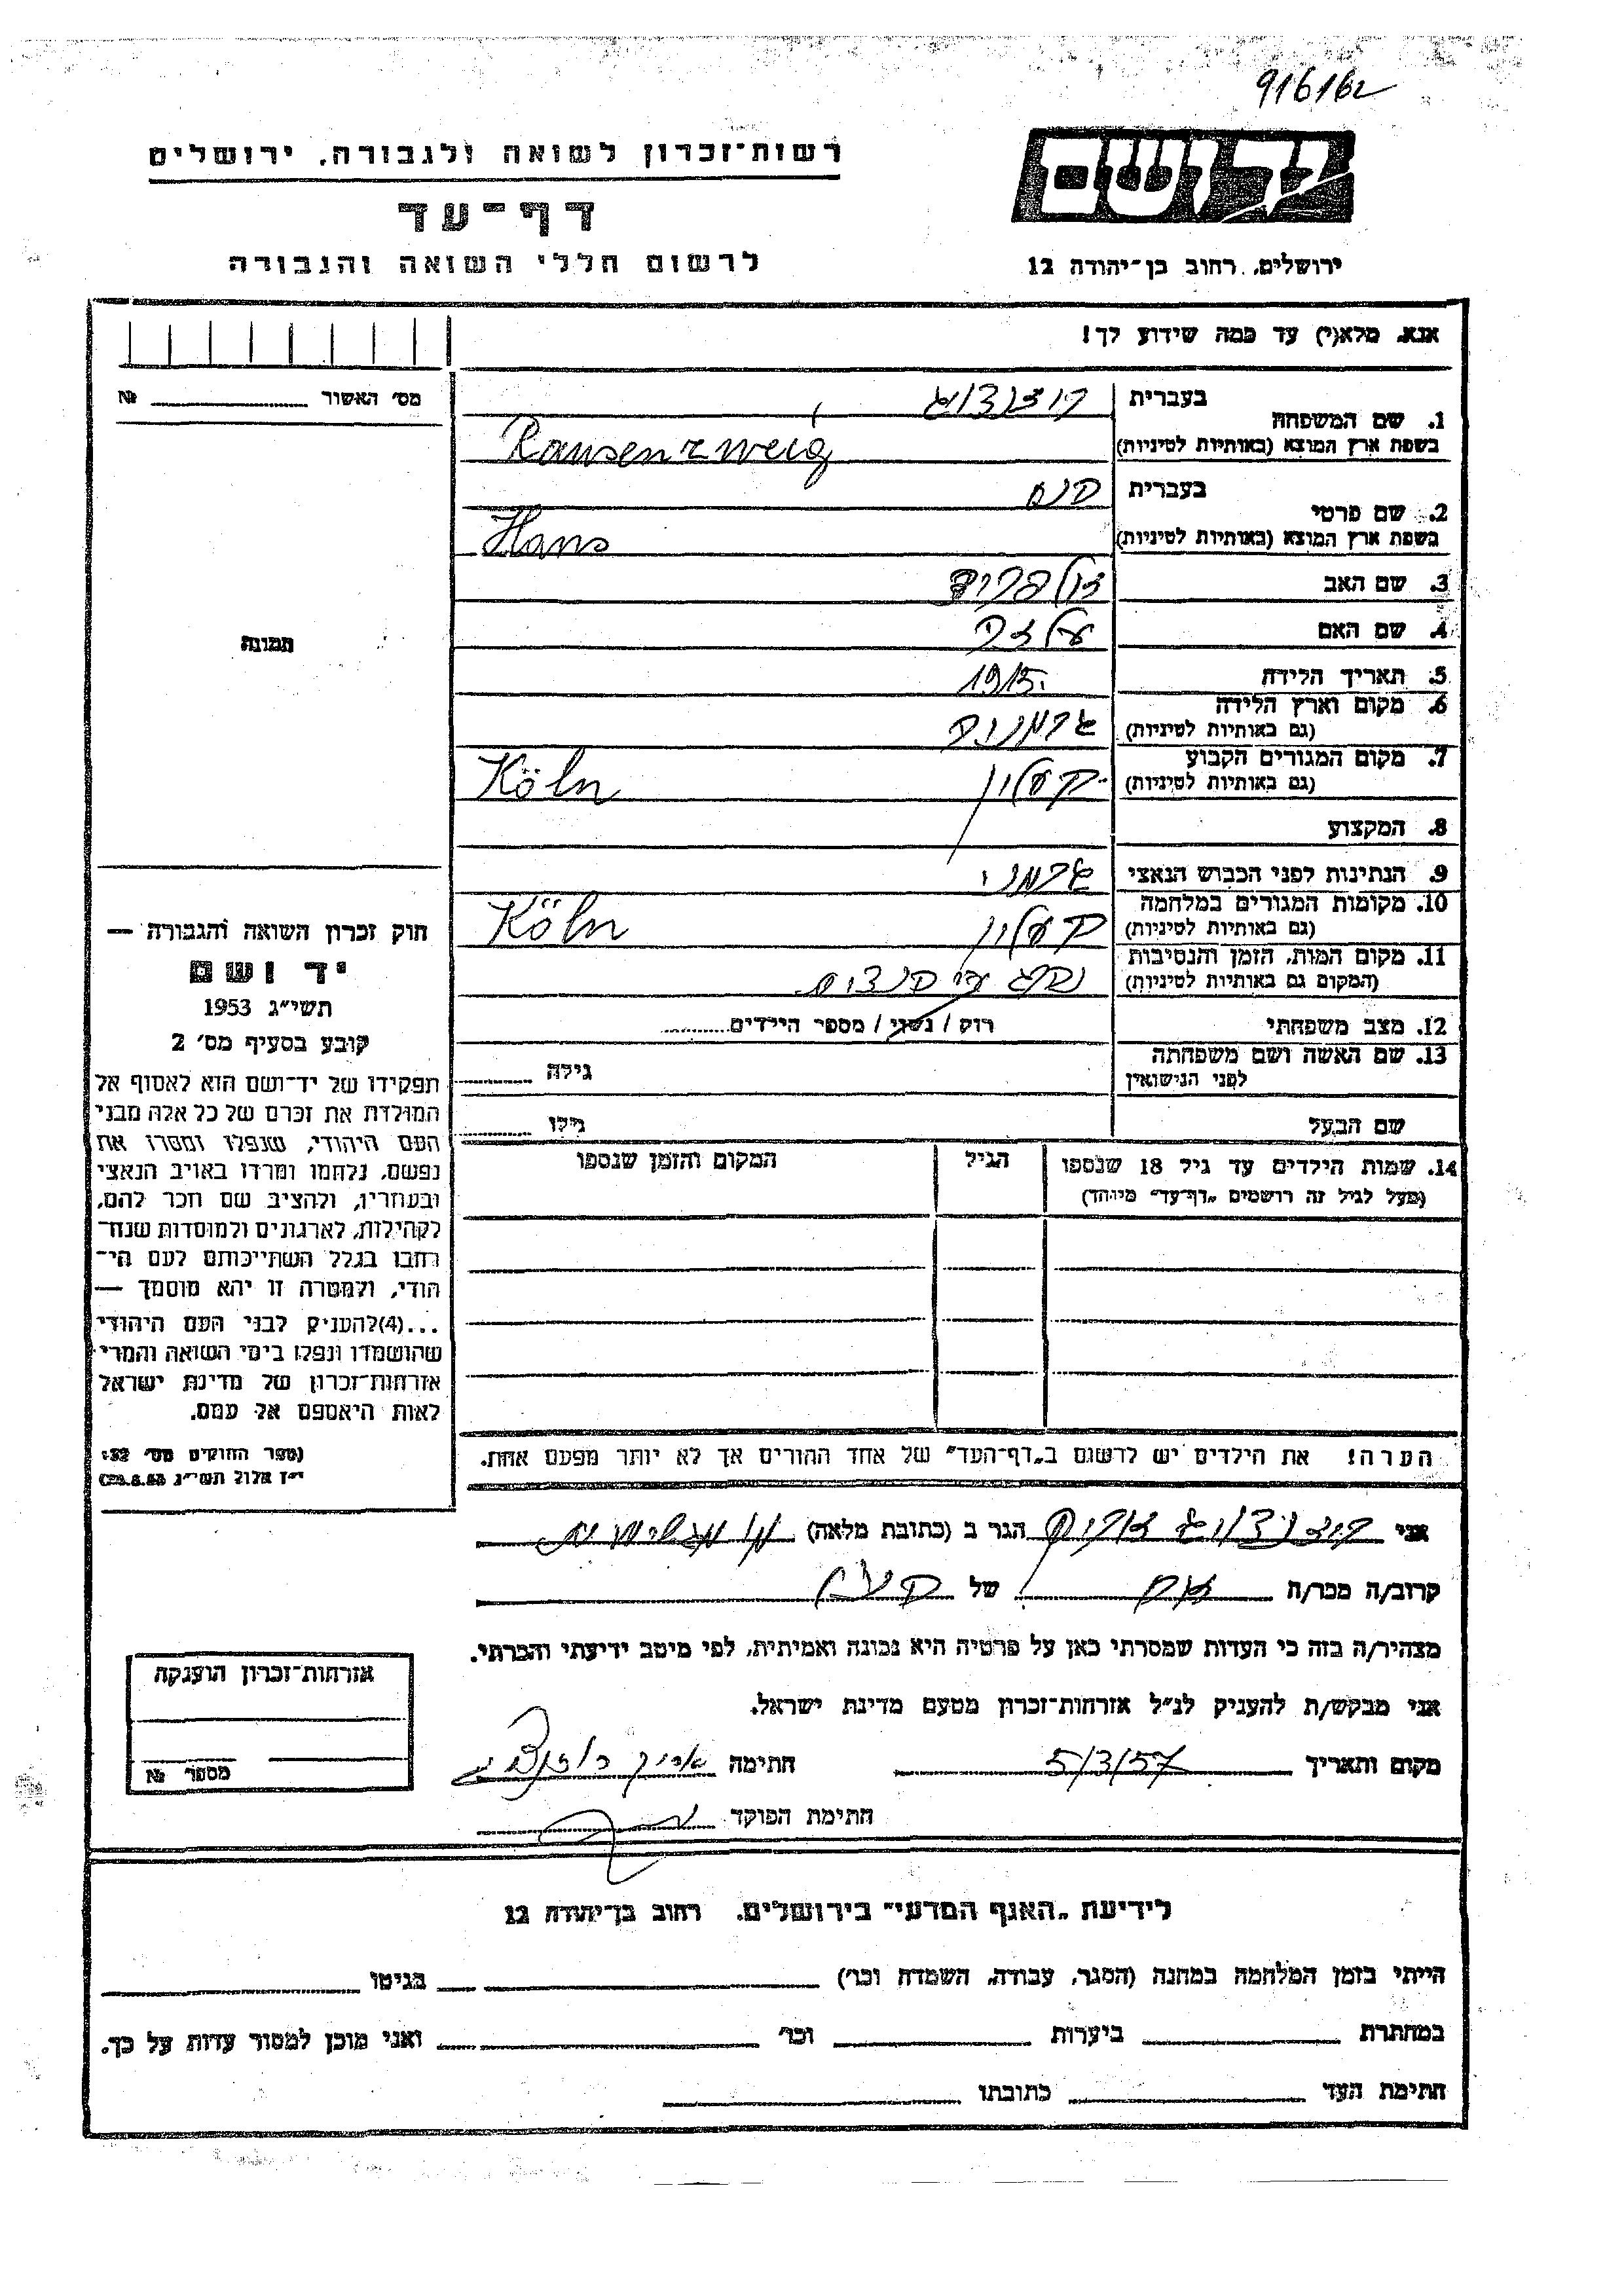 916162
ידושם
רשות־זכרון לשואה ולגבורה, ירושלים
דף־עד
לרשום חללי השואה והגבורה
ירושלים, רחוב בן־יהודה 12
אנא, מלא(י) עד כמה שידוע לך!
מס׳ האשור № 
1. שם המשפחה
בעברית רוזנצויג
בשפת ארץ המוצא (באותיות לטיניות) Rausenzweig
2. שם פרטי
בעברית הנס
בשפת ארץ המוצא (באותיות לטיניות) Hans
3. שם האב
4. שם האם
5. תאריך הלידה 1915
6. מקום וארץ הלידה
(גם באותיות לטיניות) גרמניה
7. מקום המגורים הקבוע
(גם באותיות לטיניות) קעלן Köln
8. המקצוע
9. הנתינות לפני הכבוש הנאצי גרמני
10. מקומות המגורים במלחמה
(גם באותיות לטיניות) קעלן Köln
11. מקום המות, הזמן והנסיבות
(המקום גם באותיות לטיניות) נהרג ע״י הנצים
12. מצב משפחתי רוק / נשוי / מספר הילדים
13. שם האשה ושם משפחתה
לפני הנישואין גילה
שם הבעל גילו
14. שמות הילדים עד גיל 18 שנספו הגיל המקום והזמן שנספו
(מעל לגיל זה רושמים „דף־עד״ מיוחד)
הערה! את הילדים יש לרשום ב„דף־העד״ של אחד ההורים אך לא יותר מפעם אחת.
תמונה
חוק זכרון השואה והגבורה —
יד ושם
תשי״ג 1953
קובע בסעיף מס׳ 2
תפקידו של יד־ושם הוא לאסוף אל
המולדת את זכרם של כל אלה מבני
העם היהודי, שנפלו ומסרו את
נפשם, נלחמו ומרדו באויב הנאצי
ובעוזריו, ולהציב שם וזכר להם,
לקהילות, לארגונים ולמוסדות שנח־
רבו בגלל השתייכותם לעם הי־
הודי, ולמטרה זו יהא מוסמך —
...(4)להעניק לבני העם היהודי
שהושמדו ונפלו בימי השואה והמרי
אזרחות־זכרון של מדינת ישראל
לאות היאספם אל עמם.
(ספר החוקים מס׳ 132
י״ז אלול תשי״ג 28.8.53)
אני רוזנצויג אריה הגר ב (כתובת מלאה)
קרוב/ה מכר/ה אח של
מצהיר/ה בזה כי העדות שמסרתי כאן על פרטיה היא נכונה ואמיתית, לפי מיטב ידיעתי והכרתי.
אני מבקש/ת להעניק לנ״ל אזרחות־זכרון מטעם מדינת ישראל.
מקום ותאריך 5/3/57 חתימה
חתימת הפוקד
אזרחות־זכרון הוענקה
מספר №
לידיעת „האגף המדעי״ בירושלים, רחוב בן־יהודה 12
הייתי בזמן המלחמה במחנה (הסגר, עבודה, השמדה וכו׳) בגיטו
במחתרת ביערות וכו׳ ואני מוכן למסור עדות על כך.
חתימת העד כתובתו